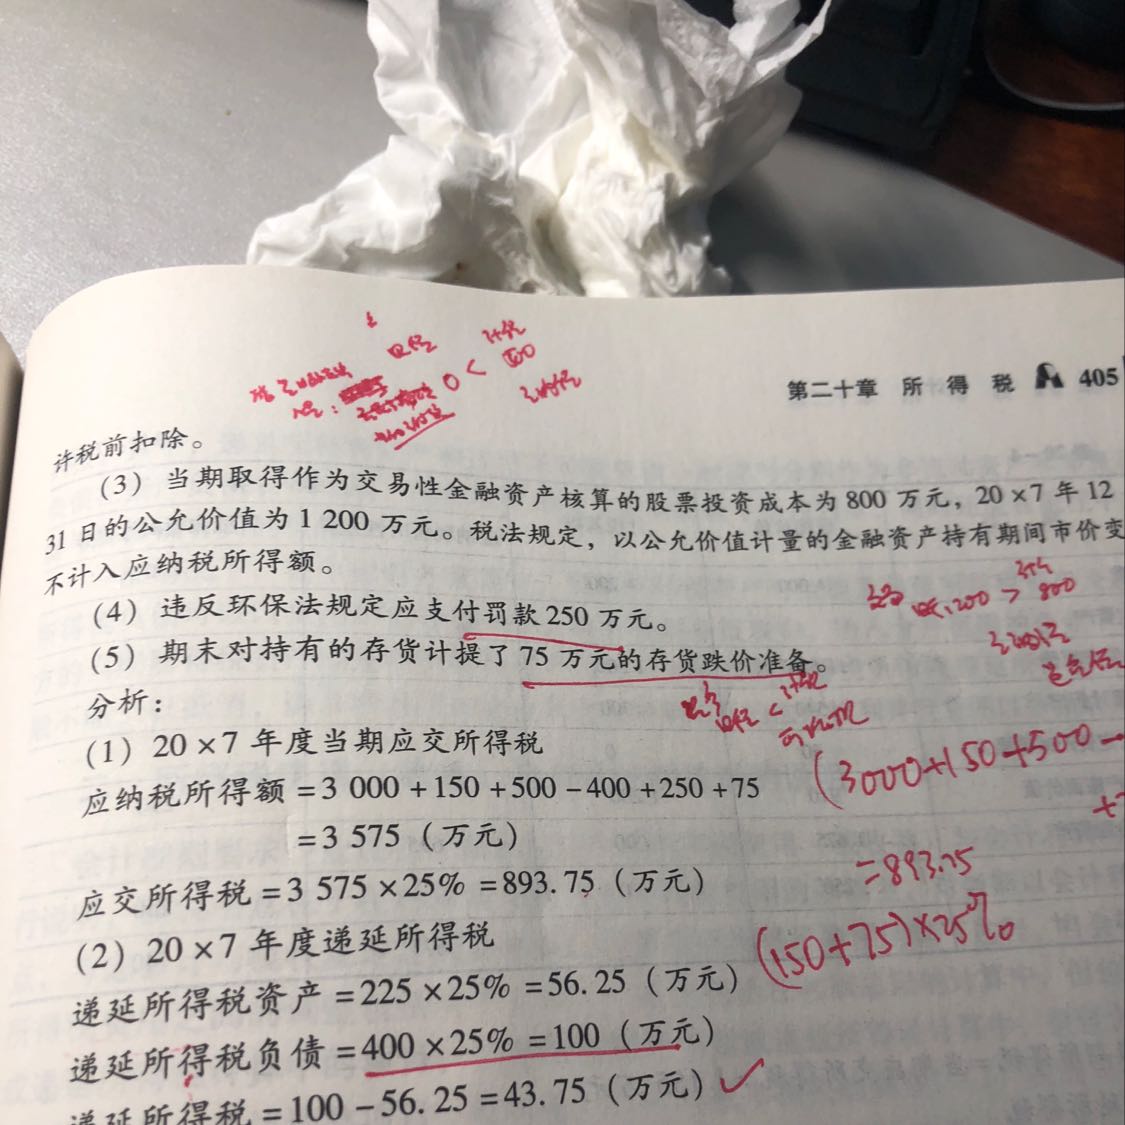 第二十章 所得税 405
许税前扣除。
(3) 当期取得作为交易性金融资产核算的股票投资成本为 800 万元，20×7 年 12
31 日的公允价值为 1 200 万元。税法规定，以公允价值计量的金融资产持有期间市价变
不计入应纳税所得额。
(4) 违反环保法规定应支付罚款 250 万元。
(5) 期末对持有的存货计提了 75 万元的存货跌价准备。
分析：
(1) 20×7 年度当期应交所得税
应纳税所得额=3 000+150+500-400+250+75
(3000+150+500-
=3 575（万元）
应交所得税=3 575×25%=893.75（万元）
=893.75
(2) 20×7 年度递延所得税
(150+75)×25%
递延所得税资产=225×25%=56.25（万元）
递延所得税负债=400×25%=100（万元）
递延所得税=100-56.25=43.75（万元）